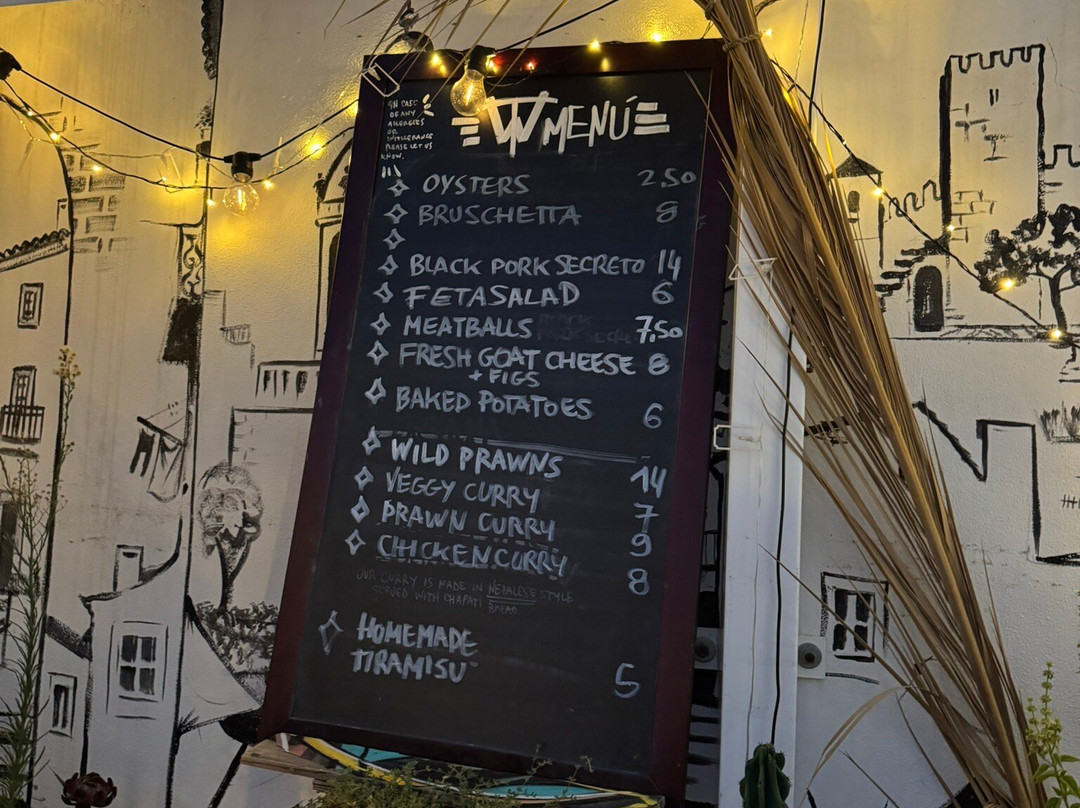 IN CASE
OF ANY
ALLERGIES
OR
INTOLERANCE
PLEASE LET US
KNOW.
MENÚ
OYSTERS 2,50
BRUSCHETTA 8
BLACK PORK SECRETO 14
FETA SALAD 6
MEATBALLS 7,50
FRESH GOAT CHEESE 8
+ FIGS
BAKED POTATOES 6
WILD PRAWNS 14
VEGGY CURRY 7
PRAWN CURRY 9
CHICKEN CURRY 8
OUR CURRY IS MADE IN NEPALESE STYLE
SERVED WITH CHAPATI BREAD
HOMEMADE
TIRAMISU 5